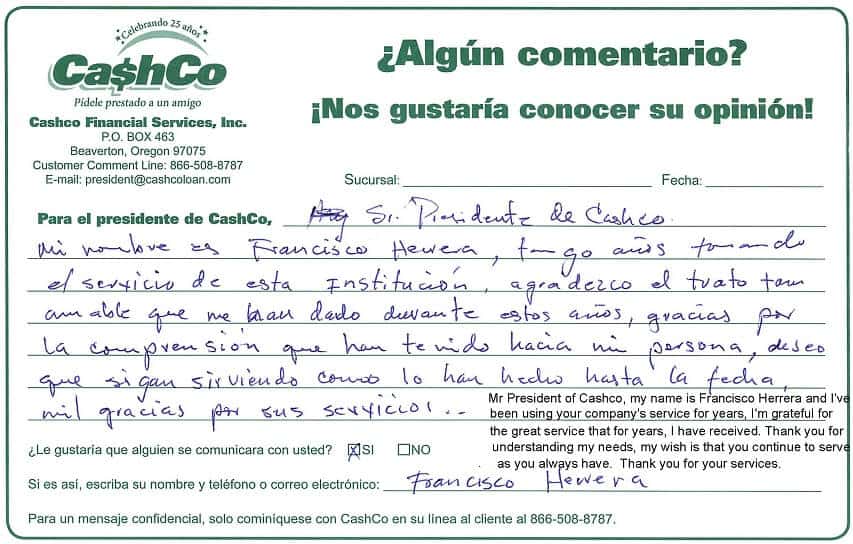 Celebrando 25 años
Ca$hCo
Pídele prestado a un amigo
Cashco Financial Services, Inc.
P.O. BOX 463
Beaverton, Oregon 97075
Customer Comment Line: 866-508-8787
E-mail: president@cashcoloan.com
¿Algún comentario?
¡Nos gustaría conocer su opinión!
Sucursal: Fecha:
Para el presidente de CashCo, Sr. Presidente de Cashco.
Mi nombre es Francisco Herrera, tengo años tomando
el servicio de esta Institución, agradezco el trato tam
amable que me han dado durante estos años, gracias por
la comprensión que han tenido hacia mi persona, deseo
que sigan sirviendo como lo han hecho hasta la fecha,
mil gracias por sus servicios...
Mr President of Cashco, my name is Francisco Herrera and I've
been using your company's service for years, I'm grateful for
the great service that for years, I have received. Thank you for
understanding my needs, my wish is that you continue to serve
as you always have. Thank you for your services.
¿Le gustaría que alguien se comunicara con usted? SI NO
Si es así, escriba su nombre y teléfono o correo electrónico: Francisco Herrera
Para un mensaje confidencial, solo cominíquese con CashCo en su línea al cliente al 866-508-8787.